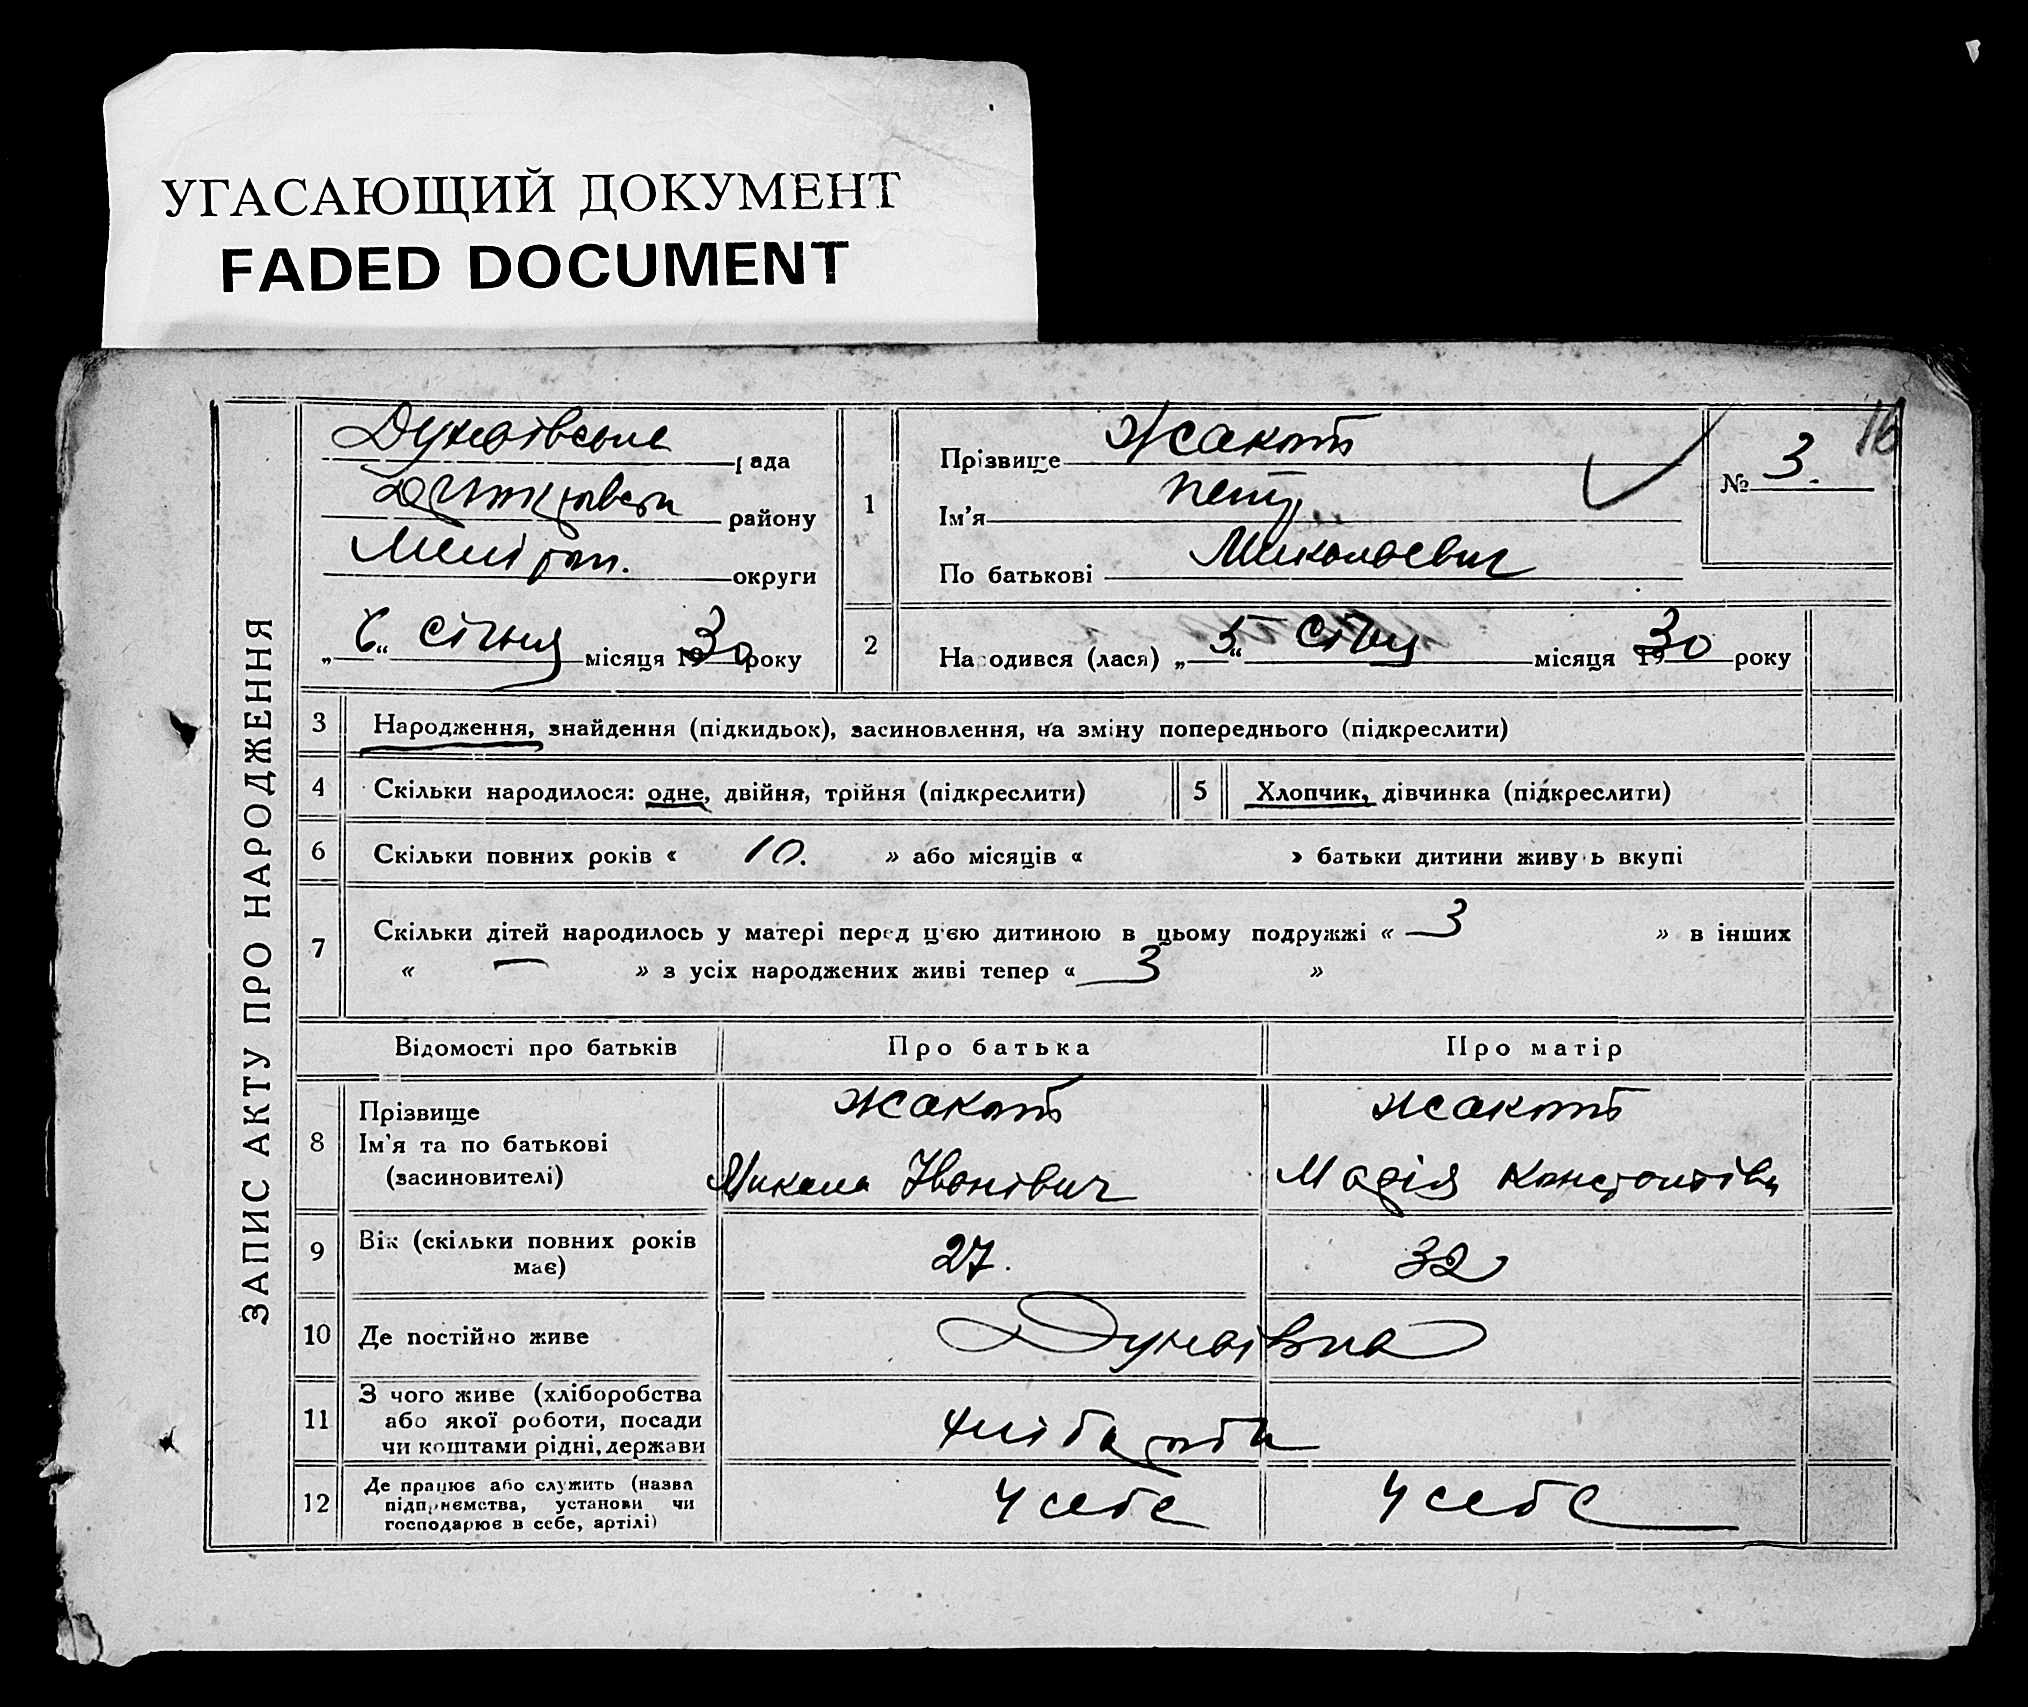 УГАСАЮЩИЙ ДОКУМЕНТ
FADED DOCUMENT
16
ЗАПИС АКТУ ПРО НАРОДЖЕННЯ
Дунаївська рада
району
Мелітоп. округи
„6“ січня місяця 1930 року
1
Прізвище Жакот
Ім'я Петр
По батькові Миколаевич
№ 3.
2 Народився (лася) „5“ січня місяця 1930 року
3 Народження, знайдення (підкидьок), засиновлення, на зміну попереднього (підкреслити)
4 Скільки народилося: одне, двійня, трійня (підкреслити)
5 Хлопчик, дівчинка (підкреслити)
6 Скільки повних років « 10. » або місяців « » батьки дитини живуть вкупі
7 Скільки дітей народилось у матері перед ц'єю дитиною в цьому подружжі « 3 » в інших
« — » з усіх народжених живі тепер « 3 »
Відомості про батьків Про батька Про матір
8
Прізвище Жакот Жакот
Ім'я та по батькові
(засиновителі) Микола Іванович Марія
9 Вік (скільки повних років
має) 27. 32
10 Де постійно живе Дунаївка
11
З чого живе (хліборобства
або якої роботи, посади
чи коштами рідні, держави
12
Де працює або служить (назва
підприємства, установи чи
господарює в себе, артілі)
у себе у себе